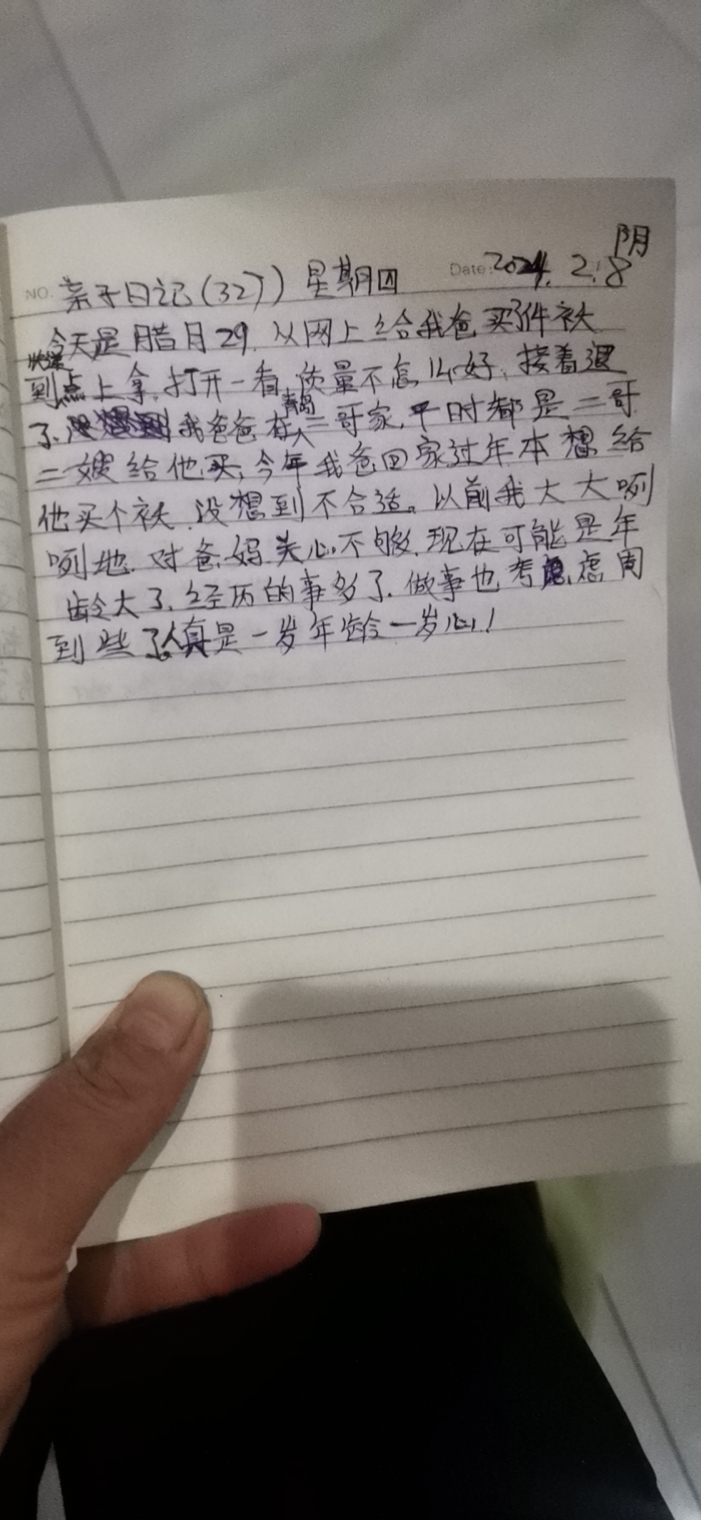 阴
NO. 亲子日记(327) 星期四 Date: 2024. 2. 8
今天是腊月29. 从网上给我爸买了件袄
快递
到点上拿, 打开一看, 质量不怎么好, 接着退
青岛
了. 我爸爸在二哥家, 平时都是二哥
二嫂给他买, 今年我爸回家过年本想给
他买个袄, 没想到不合适。以前我大大咧
咧地, 对爸妈关心不够, 现在可能是年
龄大了, 经历的事多了. 做事也考虑周
到些了, 真是一岁年龄一岁心!